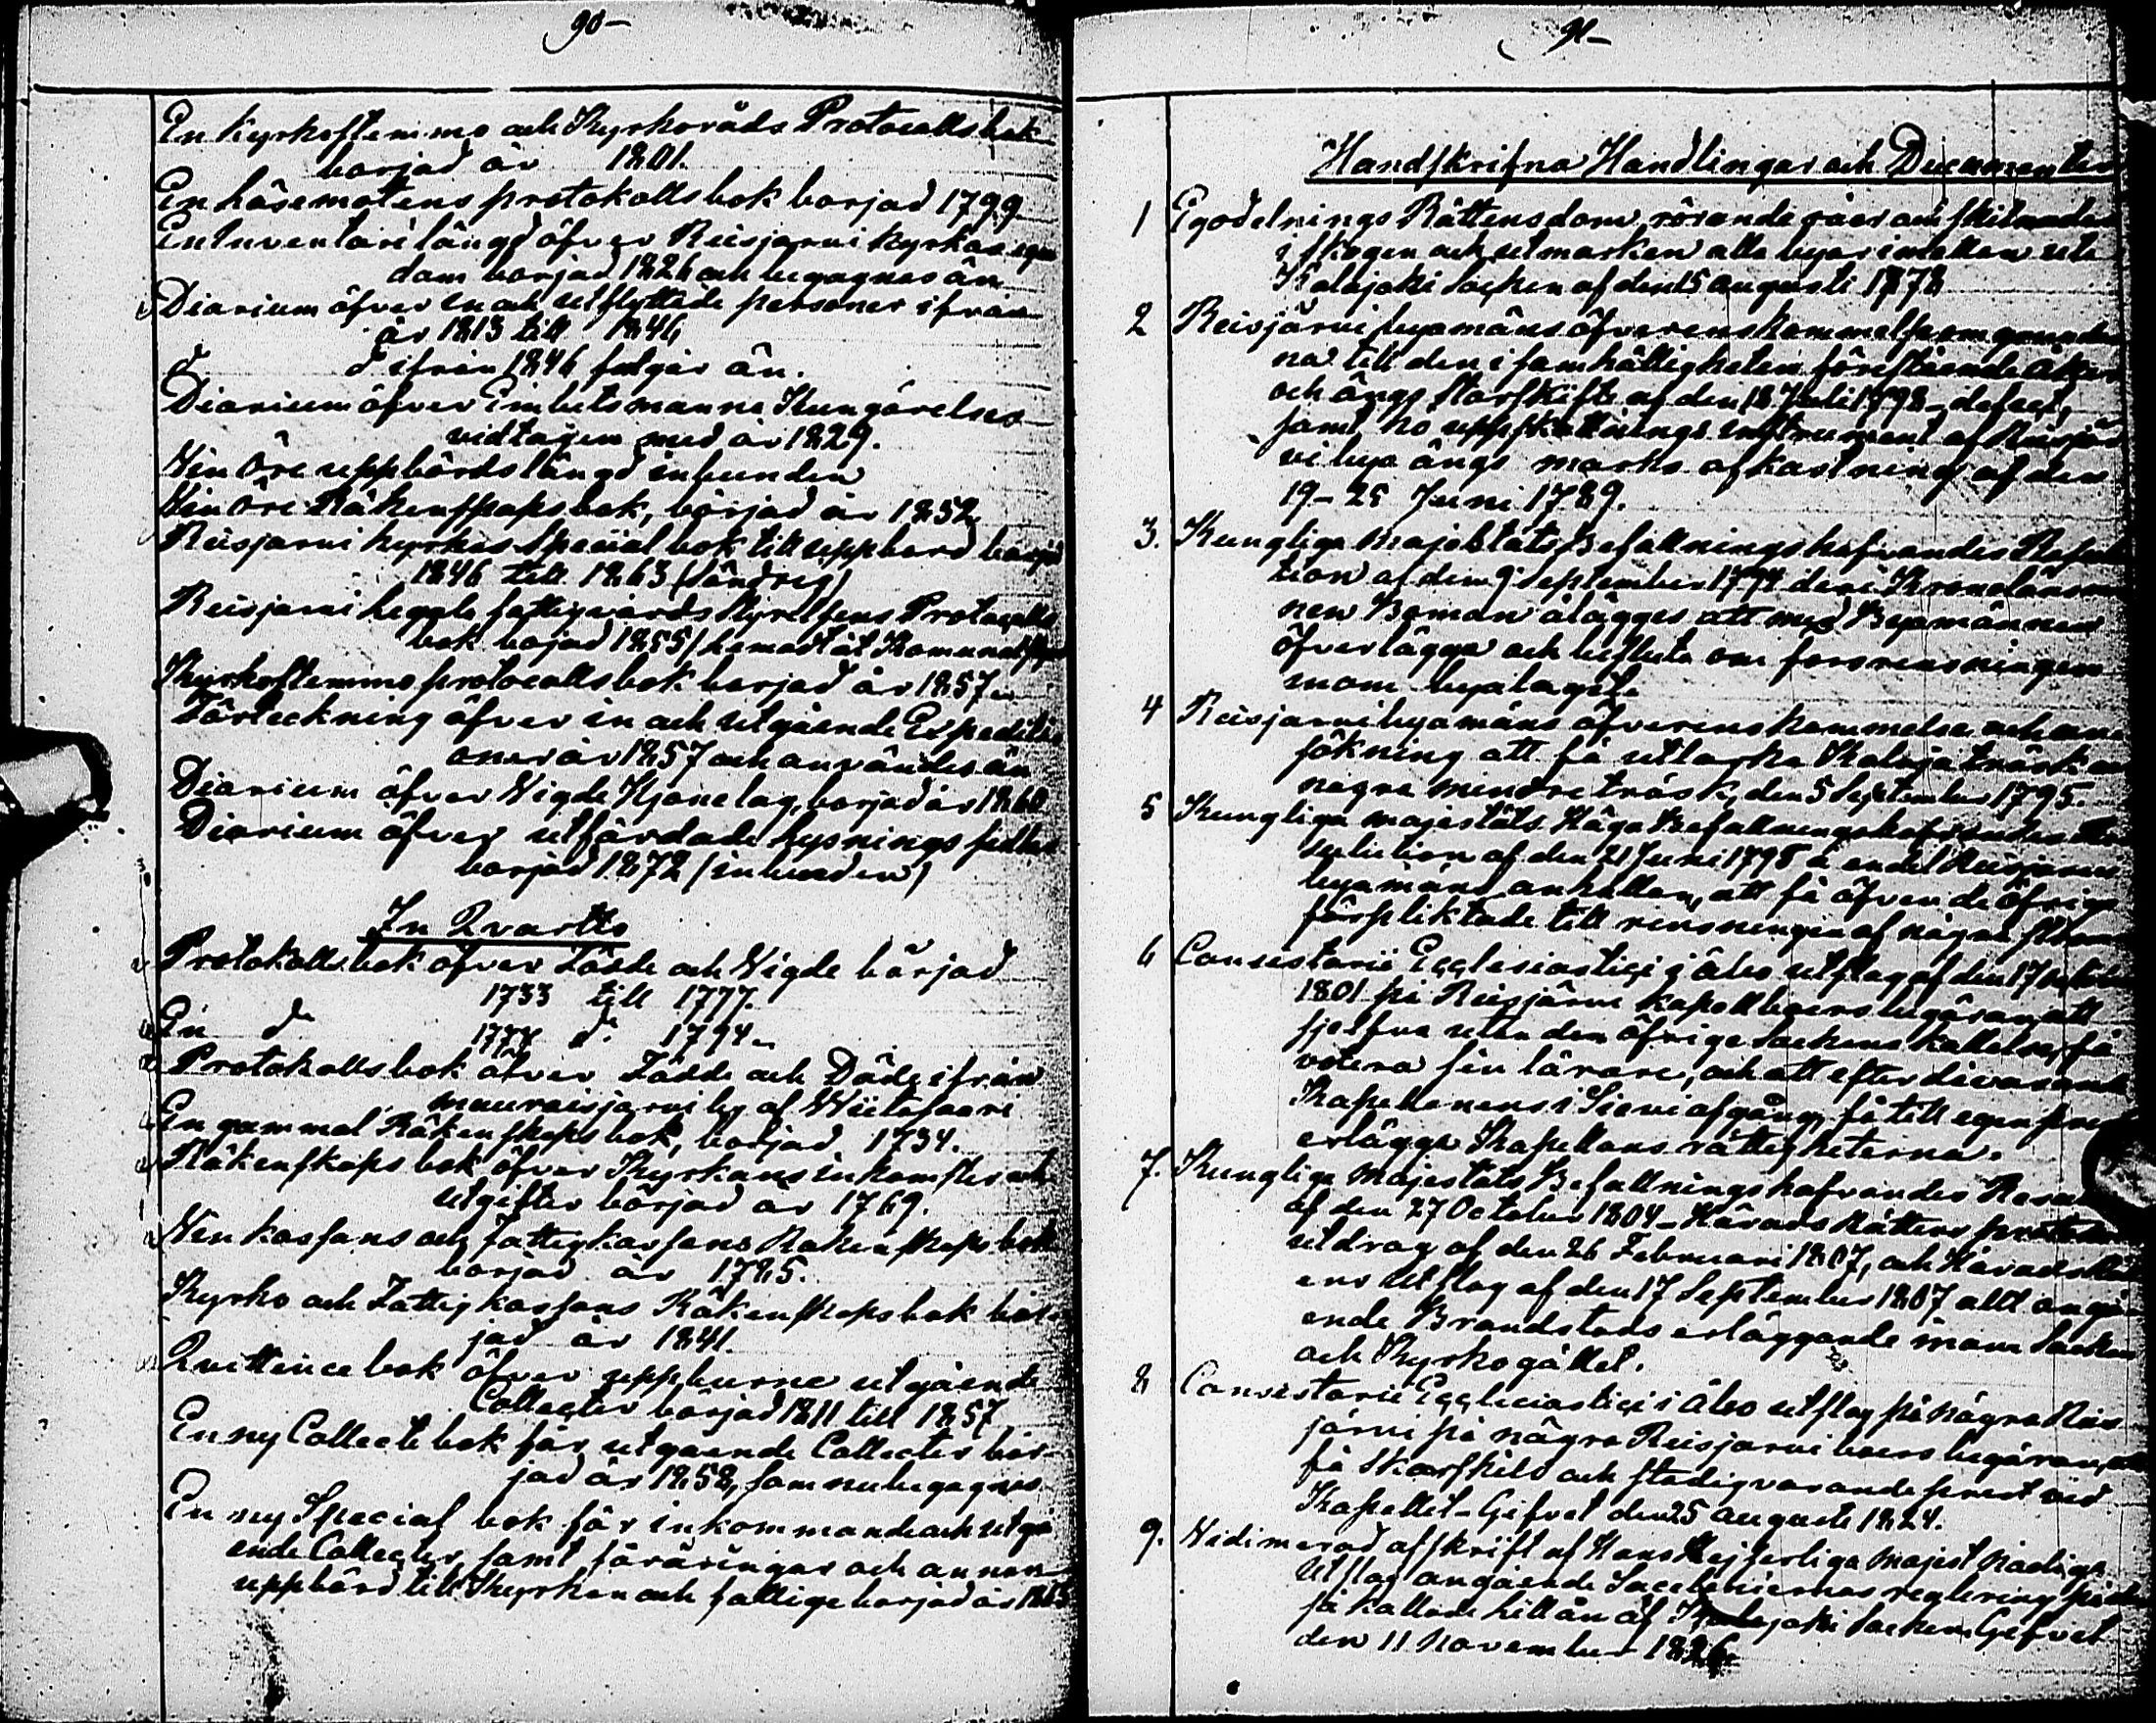 90-
En Kyrkostemmo och Kyrkoråds Protocollsbok
borjad år 1801.
En häsemötens protokollsbok borjad 1799
En Inventarii längd öfver Reisjarvi Kyrkas egen
dom borjad 1826 och begagnas än
Diarium öfver in och utflyttade personer ifrån
år 1813 till 1846
d ifrån 1846 följer än.
Diarium öfver Embetsmanna Kungörelser
vidtagen med år 1829.
Vin Öre uppbördslängd inbunden
Vin Öre Räkenskapsbok, börjad år 1852
Reisjarvi kyrkas Special bok till uppbörd börjad
1846 till 1863 (Söndrig)
Reisjarvi kapple fattigvårds styrelsens Protocolls
bok bojad 1855
Kyrkostemmo protocollsbok borjad år 1857
Förteckning öfver in och utgående Expediti
oner år 1857 och användes än
Diarium öfver Vigde Hjonelag, borjad år 1860
Diarium öfver utfärdade lysnings sedlar
borjad 1872 (inbunden)
In Qvartto
Protokollsbok öfver Födde och Vigde börjad
1733 till 1777.
En d° 1777 d° 1794
Protokollsbok öfver Födde och Döde ifrån
af Wiitasaari
En gammal Räkenskapsbok, borjad 1734.
Räkenskapsbok öfver Kyrkans inkomster och
utgifter börjad år 1769.
Vin kassans och fattigkassans Räkenskaps bok
börjad år 1785.
Kyrko och Fattigkassans Räkenskapsbok bör
jad år 1841.
Quittence bok öfver uppburne utgående
Collecter börjad 1811 till 1857
En ny Collecte bok för utgående Collecter bör
jad år 1858, som nu begagnas
En ny Special bok för inkommande och utgå
ende Collecter, samt föräringar och annan
uppbörd till Kyrkan och fattige borjad år 1865
91-
Handskrifna Handlingar och Documenter
1 Egodelnings Rättens dom rörande råer
i skogen och utmarken alla byar imellan uti
Kalajoki Socken af den 15 augusti 1778
2 Reisjärvi byamäns öfverenskommelse om grunder
na till den i samhälligheten förestående åker
och ängs storskifte af den 18 Juli 1798 defect,
samt No uppskattnings instrument af Reisjär
vi bya ängs marks afkastning af den
19-25 Juni 1789.
3. Kungliga Majestäts Befallningshafvandes Resolu
tion af den 9 September 1794 deri Kronolänsman
nen Boman ålägges att med Byamännen
öfverlägga och besluta om forsrensningen
inom byalaget.
4 Reisjarvi byamäns öfverenskommelse och an
sökning att få uttorka Kalaja träsk och
några mindre träsk, den 5 September 1795.
5 Kungliga majestäts Höga Befallningshafvandes Re
solution af den 21 Juni 1798 å endel Reisjarvi
byamäns anhållan, att få äfven de öfriga
förpliktade till rensningen af några
6 Consistorii Ecclesiastici i Åbo utslag af den 17
1801 på Reisjärvi kapellboers begäran att
sjelfva utan den öfriga Sockens kallelse, få
votera sin lärare, och att efter divarande
Kapellanens i Sievi afgång få till egen prest
erlägga Kapellans rättigheterna.
7. Kungliga Majestäts Befallningshafvandes Resolu
af den 27 October 1804 - Härads Rättens protokolls
utdrag af den 26 Februari 1807, och Häradsrätt
ens utslag af den 17 September 1807 allt angå
ende Brandstods erläggande inom Socken
och Kyrkogället.
8 Consistorii Eccleciastici i Åbo utslag på några Reis
järvi på några Reisjarvi boers begäran, att
få Skarskild och städigvarande prest vid
Kapellet - Gifvet den 25 augusti 1824.
9. Vidimerad afskrift af Hans Kejserliga Majest Nådiga
Utslag angående Sacellaniernas reglering på den
så kallade hillån af Kalajoki Socken. Gifvet
den 11 November 1826.